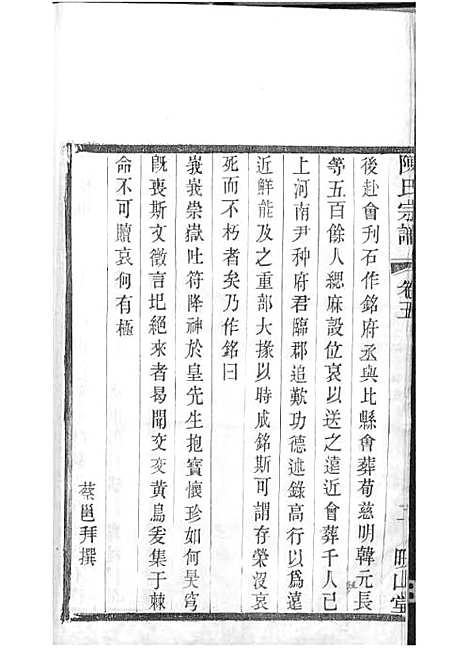 陳氏宗譜 卷五
後赴會刋石作銘府丞與比縣會葬荀慈明韓元長
等五百餘人緦麻設位哀以送之遠近會葬千人已
上河南尹种府君臨郡追歎功德述錄高行以爲遠
近鮮能及之重部大掾以時成銘斯可謂存榮没哀
死而不朽者矣乃作銘曰
峩峩崇嶽吐符降神於皇先生抱寶懷珍如何昊穹
旣喪斯文微言圮絕來者曷聞交交黃鳥爰集于棘
命不可贖哀何有極
蔡邕拜撰